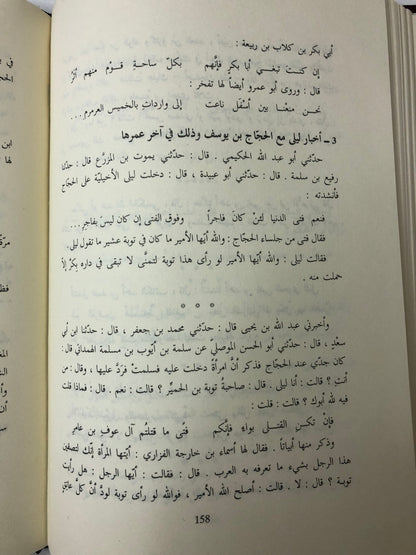 أبي بكر بن كلاب بن ربيعة :
إن كنت تبغي أبا بكر فإنَّهم بكلّ ساحةِ قومٍ منهم أثرُ
قال : وروى أبو عمرو أيضاً لها تفخر :
نحـن منعْنا بين أسْفَل ناعت إلى وارداتٍ بالخميس العرمرم ...
3 ـ أخبار ليلى مع الحجّاج بن يوسف وذلك في آخر عمرها
حدّثني أبو عبد الله الحكيمي . قال : حدّثني يموت بن المزرّع قال : حدّثنا
رفيع بن سلمة . قال : حدّثني أبو عبيدة ، قال : دخلت ليلى الأخيليّة على الحجّاج
فأنشدته :
فنعم فتى الدنيا لئنْ كانَ فاجراً وفوق الفتى إن كان ليسَ بفاجرِ ...
فقال فتى من جلساء الحجّاج : والله أيّها الأمير ما كان في توبة عشير ما تقول ليلى .
فقالت ليلى : والله أيّها الأمير لو رأى هذا توبة لتمنّى لا تبقى في داره بِكرٌ إلاّ
حملت منه .
* * *
وأخبرني عبد الله بن يحيى قال : حدّثني محمد بن جعفر ، قال : حدّثنا ابن أبي
سعْدٍ ، قال : حدّثني أبو الحسن الموصليّ عن سلمة بن أيّوب بن مسلمة الهمداني قال :
كان جدّي عند الحجّاج فذكر أنّ امرأةً دخلت عليه فسلّمتْ فردَّ عليها ، وقال : من
أنتِ ؟ قالت : أنا ليلى . قال : صاحبةُ توبة بن الحميِّر ؟ قالت : نعم . قال : فماذا قلت
فيه لله أبوك ؟ قالت : قلت :
فإنْ تكسنِ القتلى بواءً فإنّكم فتًى ما قتلتُم آل عوفِ بن عامر
وذكر منها أبياتاً . فقال لها أسماء بن خارجة الفزاري : أيّتها المرأة إنّك لتصفينَ
هذا الرجل بشيء ما تعرفه به العرب . قال : فقالت : أيّها الرجل : هل رأيت
توبة ؟ قال : لا . قالت : أصلح الله الأمير ، فوالله لو رأى توبة لودَّ أنَّ كلَّ عاتقٍ
158